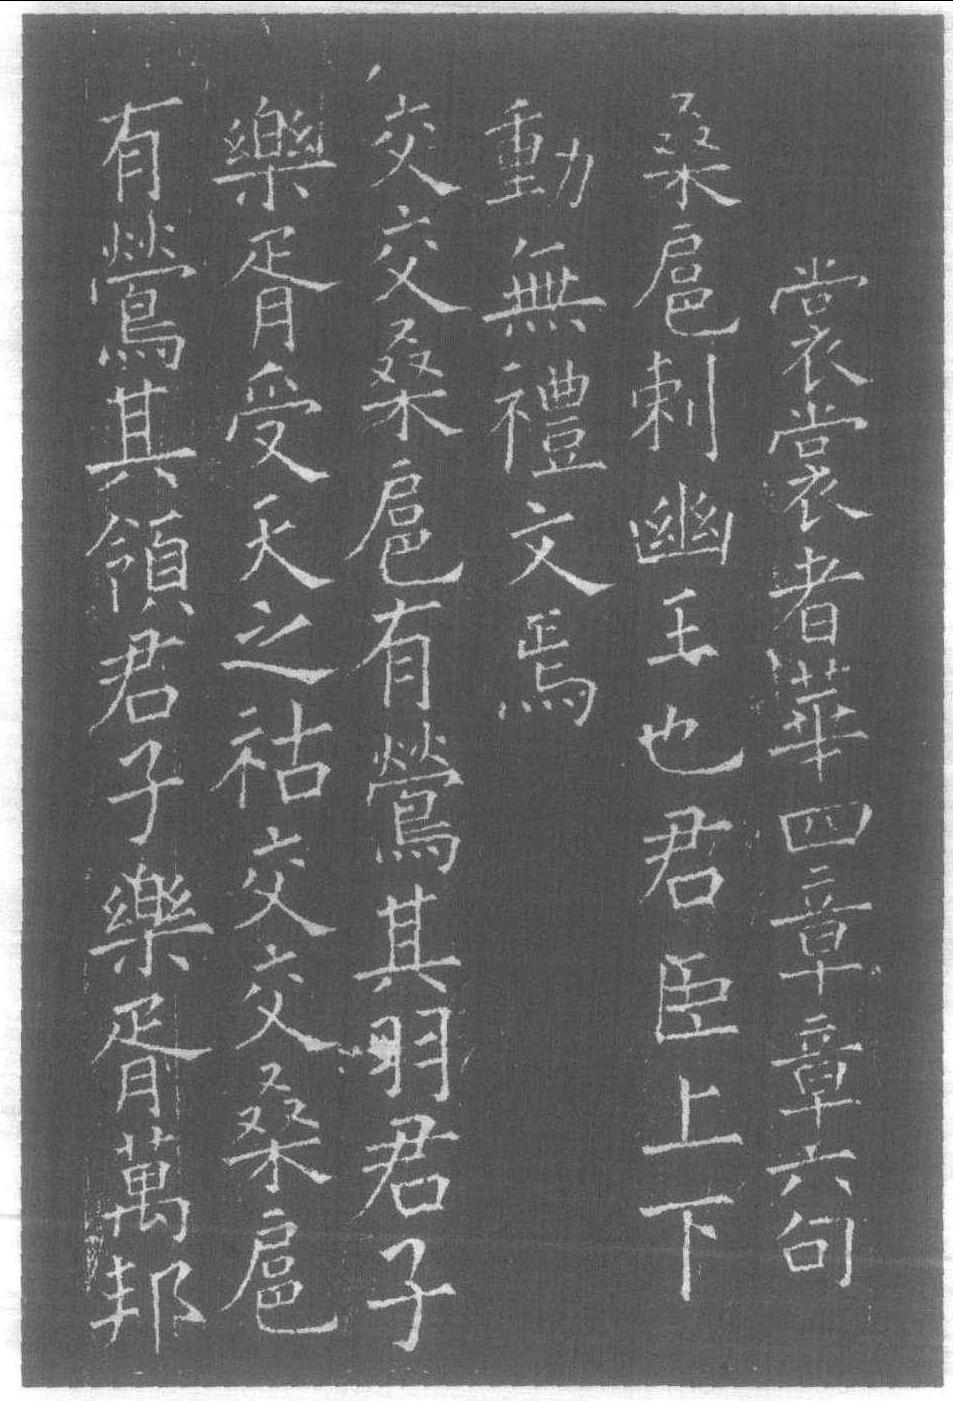 裳裳者華四章章六句
桑扈刺幽王也君臣上下
動無禮文焉
交交桑扈有鶯其羽君子
樂胥受天之祜交交桑扈
有鶯其領君子樂胥萬邦